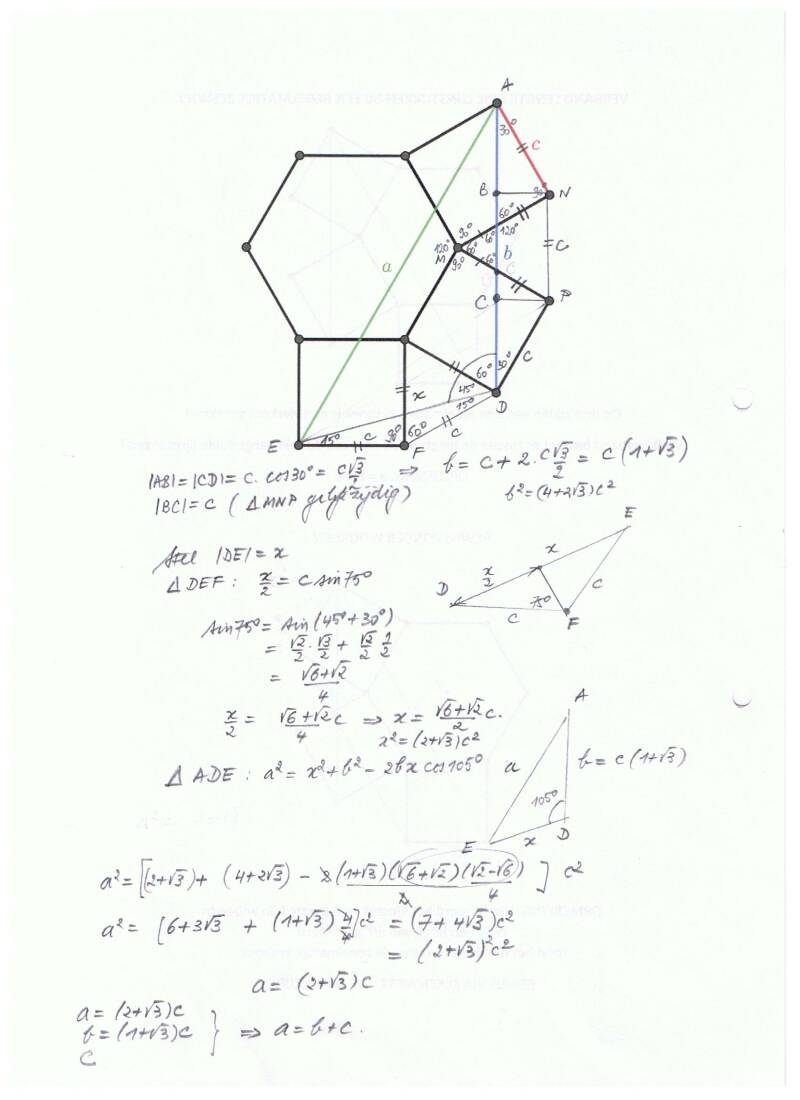 A
30°
c
B
90°
N
60°
90°
60°
120°
120°
M
60°
b
= c
a
90°
60°
c
C
P
c
60°
30°
x
45°
D
15°
c
15°
c
90°
60°
E
F
|AB| = |CD| = c. cos30° = c√3/2 ⇒ b = c + 2. c√3/2 = c (1+√3)
|BC| = c ( Δ MNP gelijkzijdig) b² = (4+2√3)c²
E
Stel |DE| = x
x
Δ DEF : x/2 = c sin75°
x/2
D
75°
c
c
F
sin75° = sin (45°+30°)
= √2/2 . √3/2 + √2/2 1/2
= √6+√2/4
A
x/2 = √6+√2/4 c ⇒ x = √6+√2/2 c.
x² = (2+√3)c²
Δ ADE : a² = x²+b² – 2bx cos105°
a
b = c (1+√3)
105°
E
x
D
a² = [(2+√3) + (4+2√3) – 2 (1+√3)(√6+√2)/2 (√2-√6)/4 ] c²
a² = [6+3√3 + (1+√3) 4/4]c² = (7+4√3)c²
= (2+√3)²c²
a = (2+√3)c
a = (2+√3)c
b = (1+√3)c } ⇒ a = b+c.
c